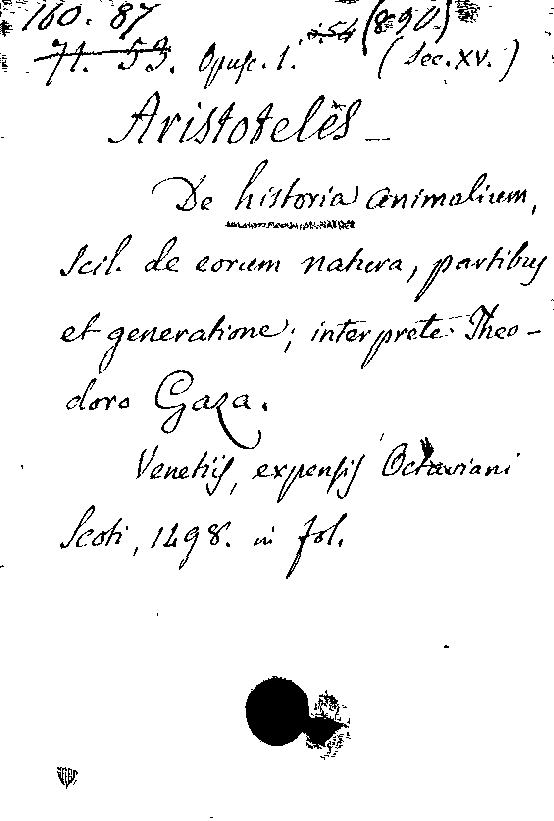 160. 87 (890.)
71. 53. Opusc. 1. (Sec. XV.)
Aristoteles –
De historia animalium,
scil. de eorum natura, partibus
et generatione; interprete Theo-
doro Gaza.
Venetiis, expensis Octaviani
Scoti, 1498. in fol.